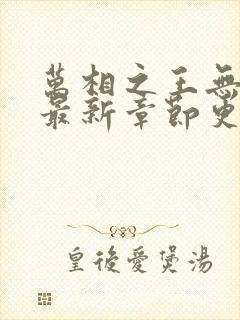 萬相之王無
最新章節更
皇後愛煲湯